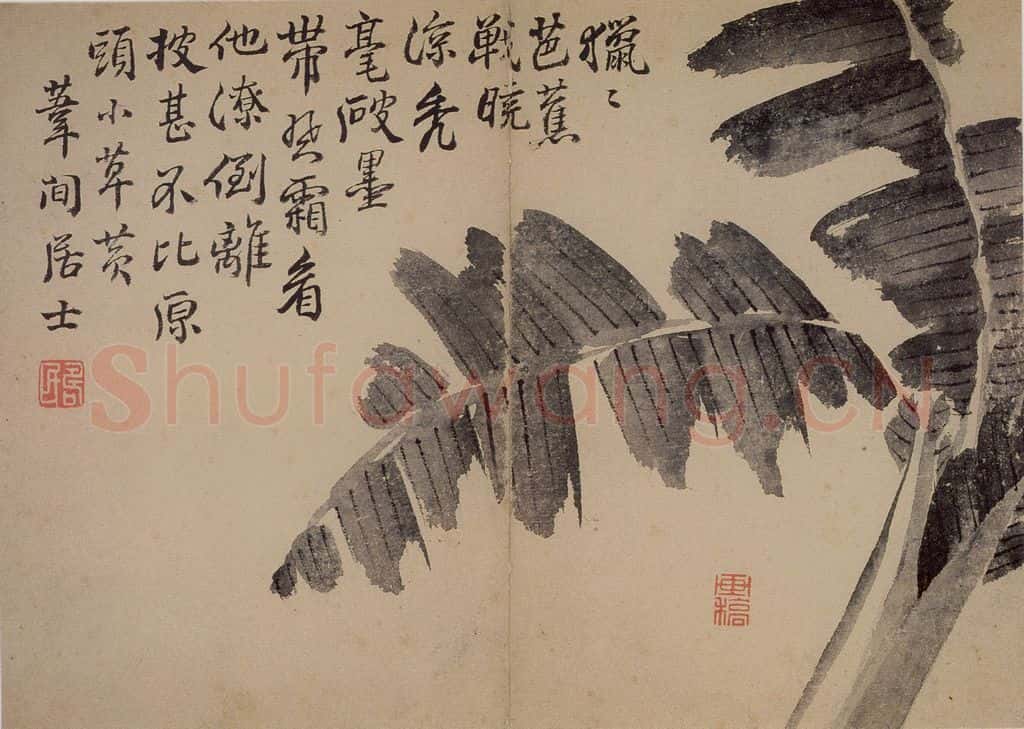 獵〻
芭蕉
戰曉
涼禿
毫破墨
帶霜看
他潦倒離
披甚不比原
頭小草黄
葦間居士
Shufawang.CN